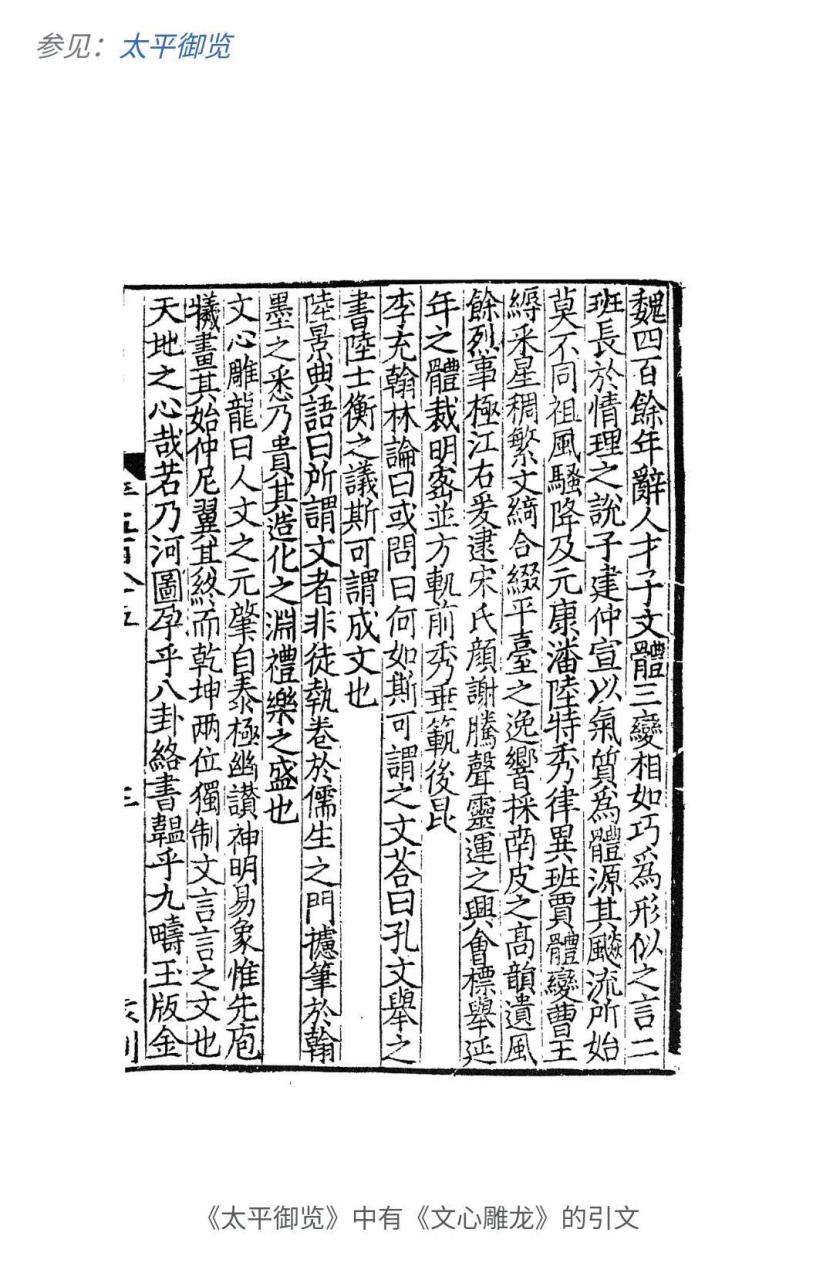 参见：太平御览
魏四百餘年辭人才子文體三變相如巧爲形似之言二
班長於情理之說子建仲宣以氣質爲體源其飈流所始
莫不同祖風騷降及元康潘陸特秀律異班賈體變曹王
縟采星稠繁文綺合綴平臺之逸響採南皮之高韻遺風
餘烈事極江右爰逮宋氏顏謝騰聲靈運之興會標舉延
年之體裁明密並方軌前秀垂範後昆
李充翰林論曰或問曰何如斯可謂之文荅曰孔文舉之
書陸士衡之議斯可謂成文也
陸景典語曰所謂文者非徒執卷於儒生之門攄筆於翰
墨之悉乃貴其造化之淵禮樂之盛也
文心雕龍曰人文之元肇自泰極幽讃神明易象惟先庖
犧畫其始仲尼翼其終而乾坤兩位獨制文言言之文也
天地之心哉若乃河圖孕乎八卦絡書韞乎九疇玉版金
五百八十五 三
《太平御览》中有《文心雕龙》的引文